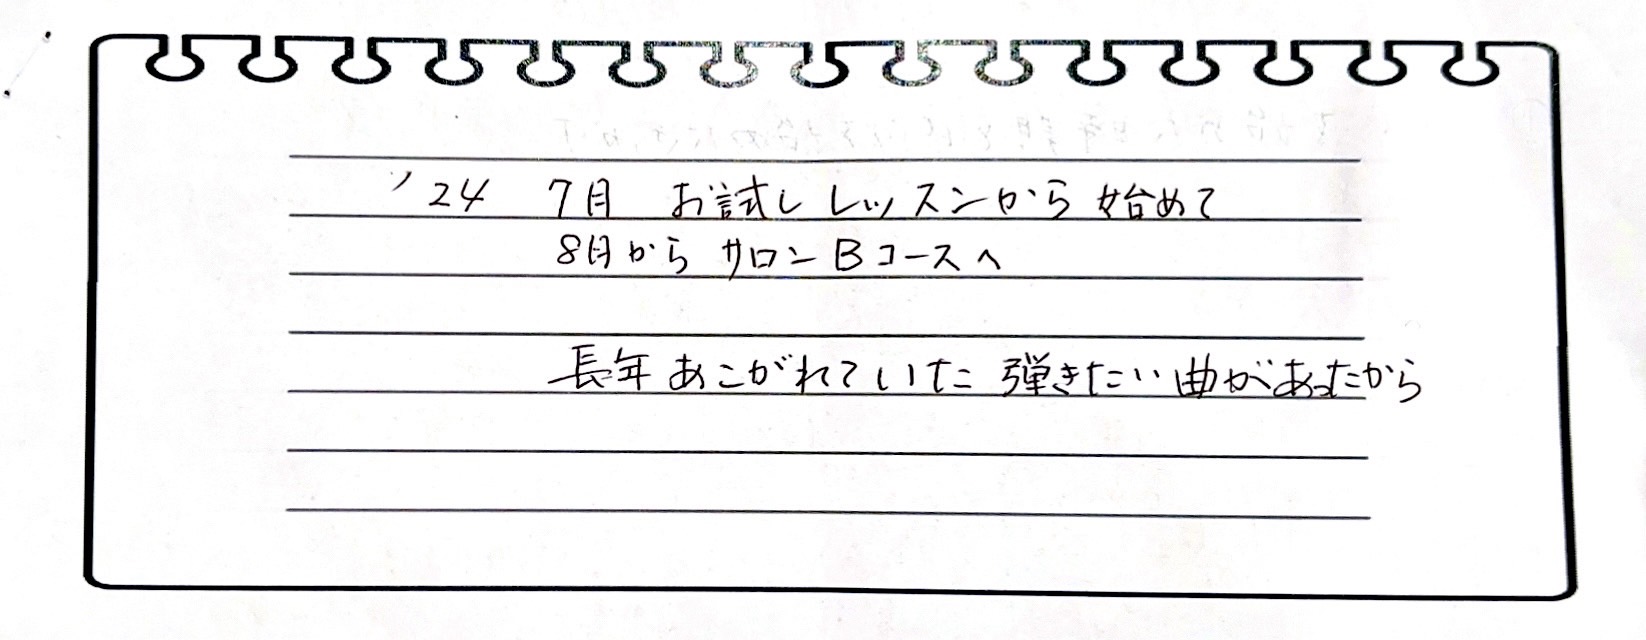 '24 7月 お試しレッスンから始めて
8月から サロンBコースへ
長年あこがれていた 弾きたい曲があったから